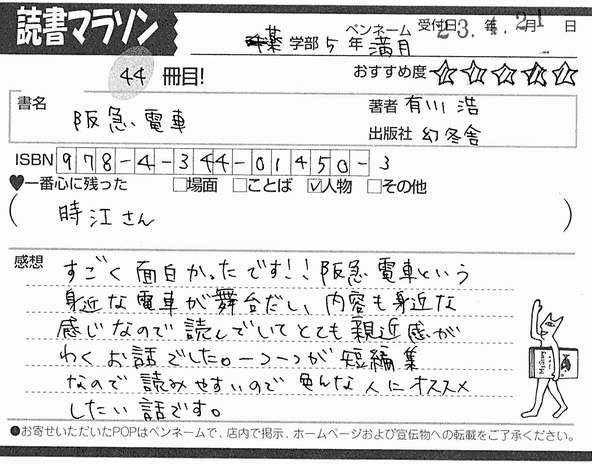 読書マラソン
ペンネーム 受付日 23年 4月 21日
薬 学部 5年 満月
44 冊目!
おすすめ度 ☆☆☆☆☆
書名 阪急電車
著者 有川 浩
出版社 幻冬舎
ISBN 978-4-344-01450-3
♥一番心に残った □場面 □ことば ☑人物 □その他
( 時江さん )
感想 すごく面白かったです!!阪急電車という
身近な電車が舞台だし、内容も身近な
感じなので読んでしてとても親近感が
わくお話でした。一つ一つが短編集
なので読みやすいので色んな人にオススメ
したい話です。
Mystery
●お寄せいただいたPOPはペンネームで、店内で掲示、ホームページおよび宣伝物への転載をご了承ください。